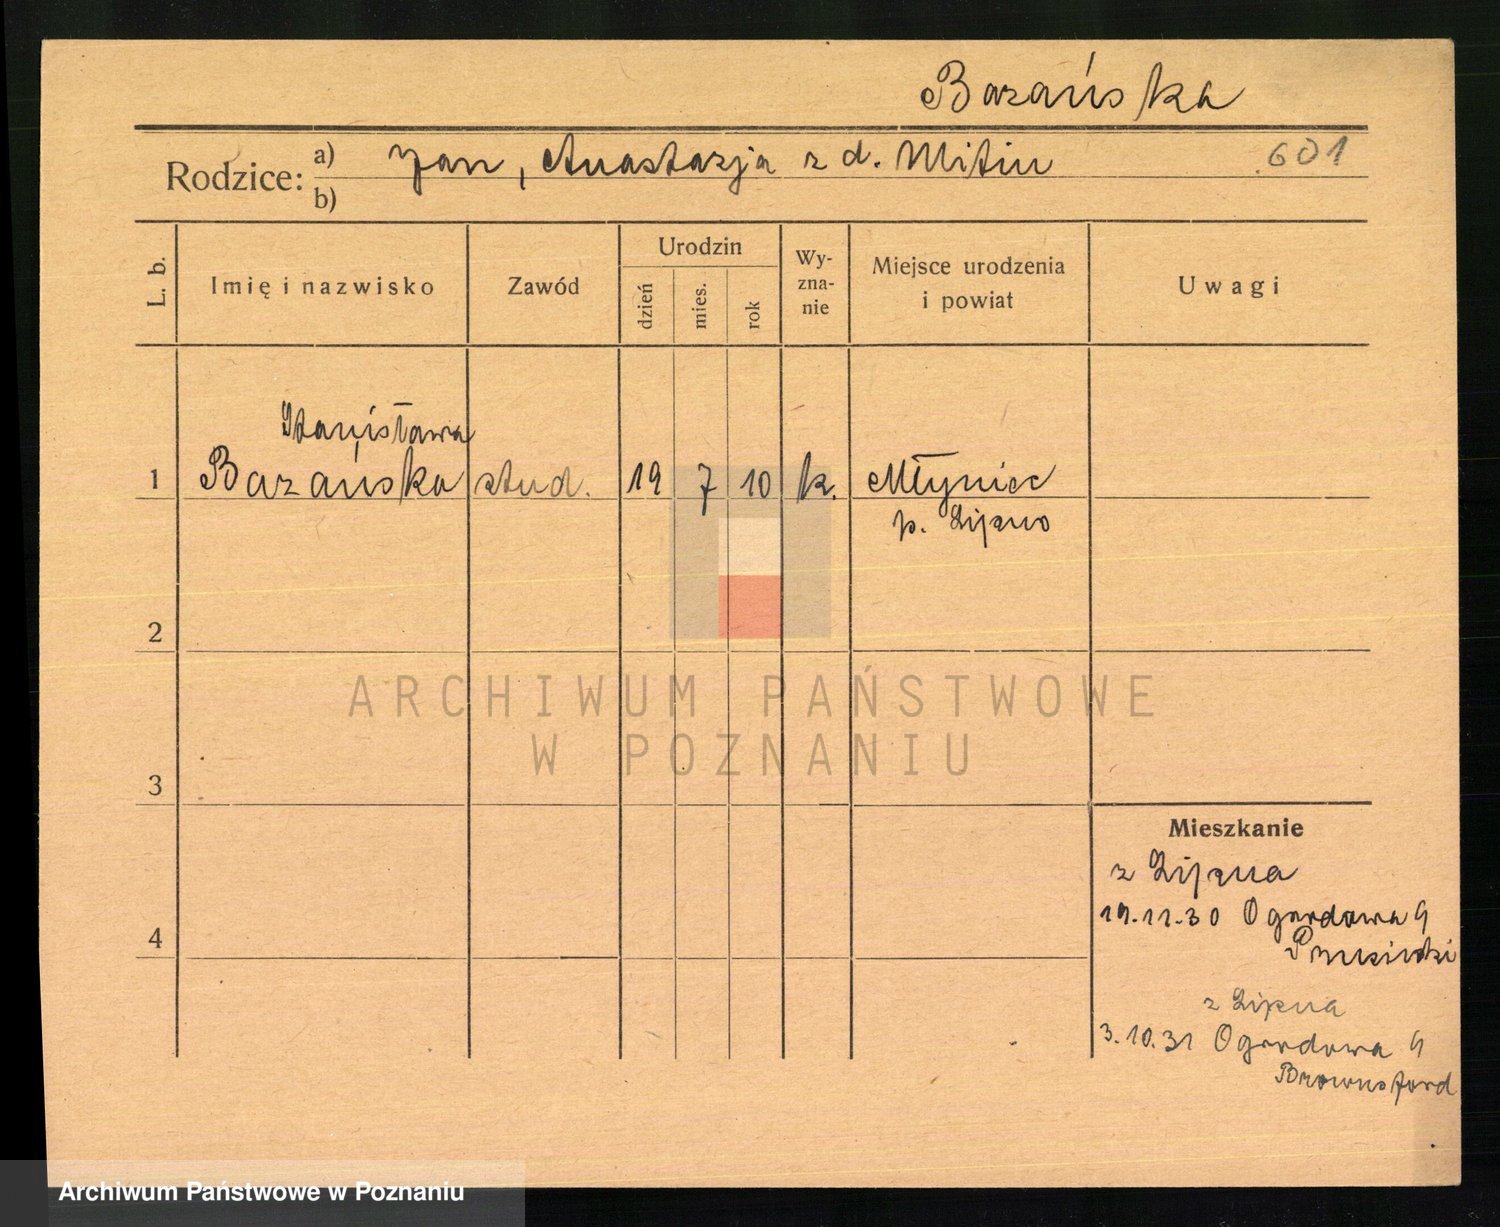 Bazańska
Rodzice: a) Jan, Anastazja z d. Mitin 601
b)
L. b. Imię i nazwisko Zawód Urodzin dzień mies. rok Wyznanie Miejsce urodzenia i powiat Uwagi
Stanisława
1 Bazańska stud. 19 7 10 k. Młyniec
p. Lipno
2
ARCHIWUM PAŃSTWOWE
W POZNANIU
3
Mieszkanie
z Lipna
19.11.30 Ogrodowa 9
4
z Lipna
3.10.31 Ogrodowa 9
Brownsford
Archiwum Państwowe w Poznaniu